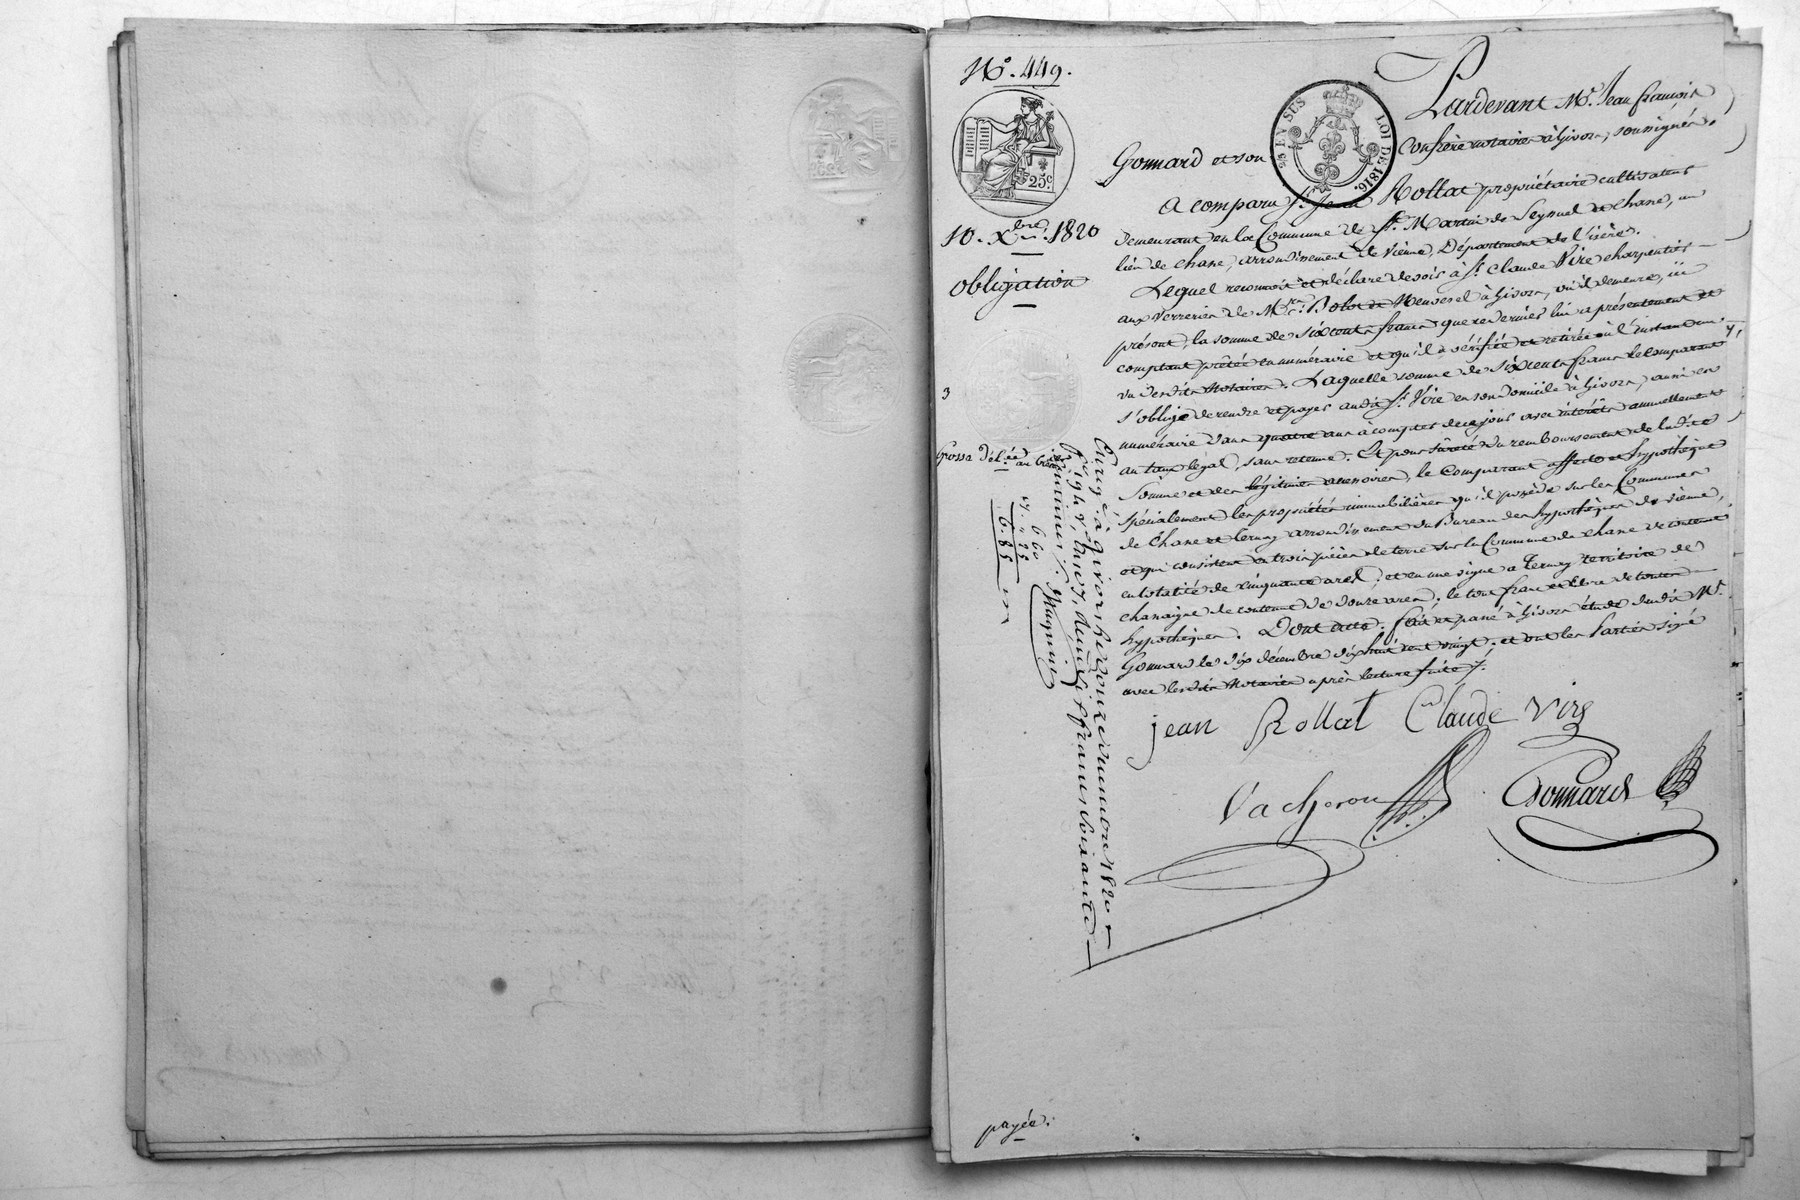 N.º 449.
25 EN SUS LOI DE 1816.
25.c
10. Xbre. 1820
obligation
3
Grosse dél.ée au Créancier
Pardevant M.e Jean françois
Gonnard et son Confrère notaires à Givors, soussignés,
A comparu S.r Jean Rollat propriétaire cultivateur
demeurant en la Commune de S.t Martin de Seyssuel et chane, au
lieu de chane, arrondissement de vienne, Département de l'isère.
Lequel reconnoit et déclare devoir à S.r Claude Vire charpentier
aux verreries de M.rs Bolot de Neuvesel à Givors, où il demeure, ici
présent, la somme de six cents francs que ce dernier lui a présentement et
comptant prêtée en numéraire et qu'il a vérifiée et retirée à l'instant au
vu desdits Notaires. Laquelle somme de six cents francs le comparant
s'oblige de rendre et payer audit S.r Vire en son domicile à Givors, aussi en
numéraire dans quatre ans à compter de ce jour avec intérêts annuellement
au taux légal, sans retenue. Et pour sureté du remboursement de ladite
Somme et des légitimes accessoires, le Comparant affecte et hypothèque
spécialement les propriétés immobilières qu'il possède sur les Communes
de Chane et Ternay arrondissement du Bureau des hypothèques de vienne,
et qui consistent en trois pièces de terre sur la Commune de chane de contenue
en totalité de cinquante ares; et en une vigne à Ternay territoire de
chanaigne de contenue de douze ares; le tout franc et libre de toutes
hypothèques. Dont acte. Fait et passé à Givors étude dudit M.e
Gonnard le dix décembre dix huit cent vingt; et ont les Parties signé
avec lesdits Notaires après lecture faite./.
jean Rollat Claude Vire
Vacheron Gonnard
Enrg.é à Givors le douze décembre 1820
f.º
reçu six francs soixante
centimes
6 60
6.85
payée.